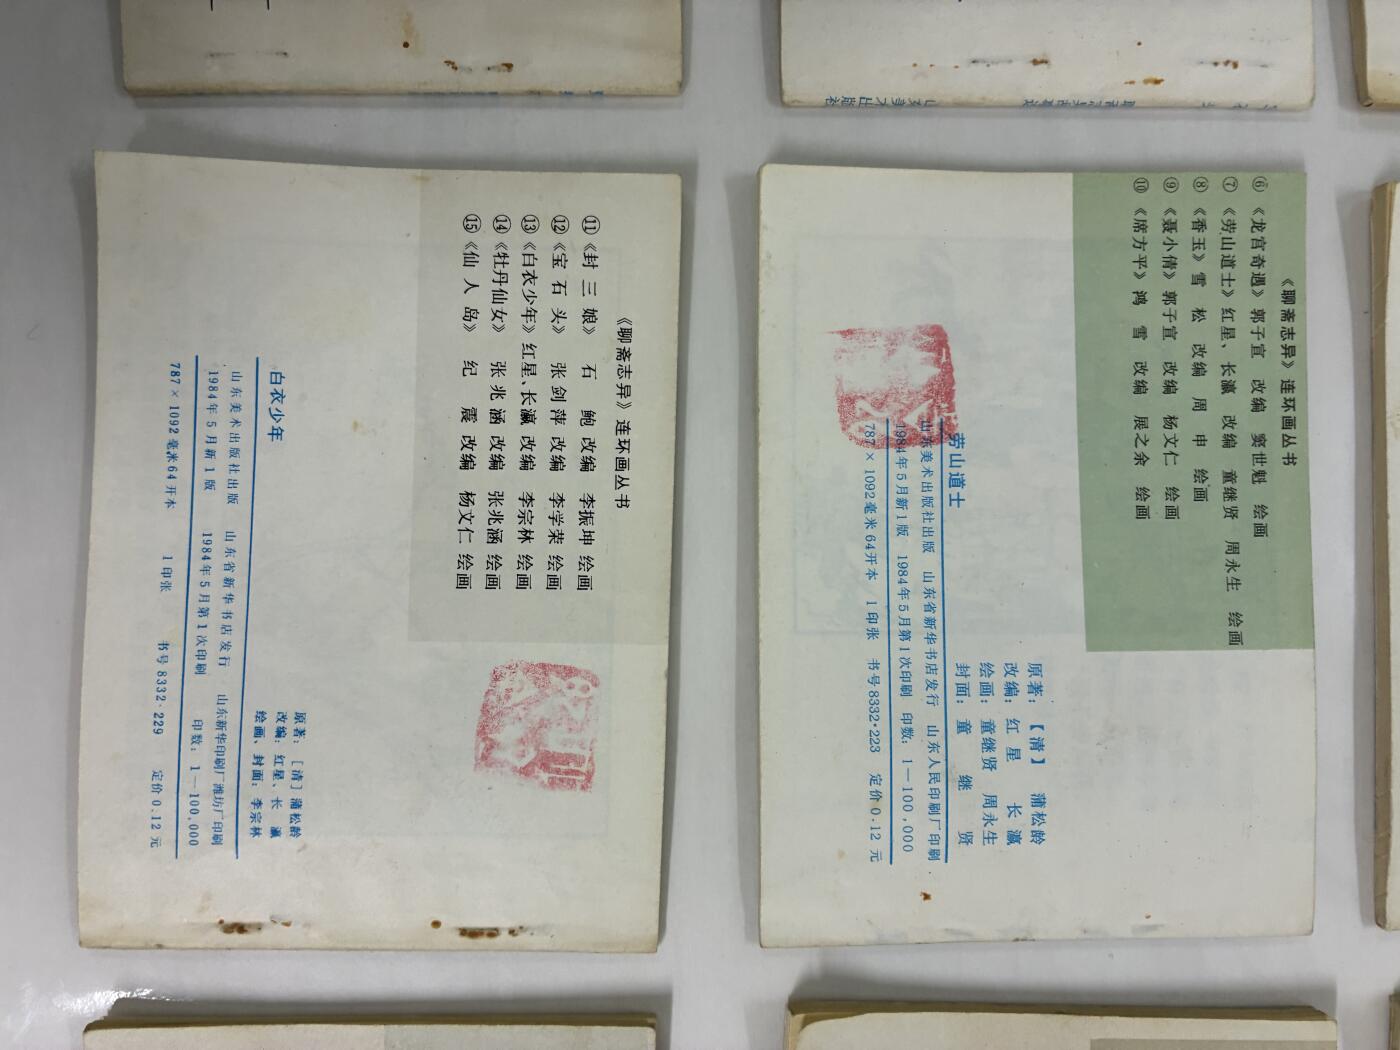 《聊斋志异》连环画丛书
⑪《封三娘》 石鲍 改编 李振坤 绘画
⑫《宝石头》 张剑萍 改编 李学荣 绘画
⑬《白衣少年》红星、长瀛 改编 李宗林 绘画
⑭《牡丹仙女》 张兆涵 改编 张兆涵 绘画
⑮《仙人岛》 纪震 改编 杨文仁 绘画
原著：［清］蒲松龄
改编：红星、长瀛
绘画、封面：李宗林
白衣少年
山东美术出版社出版 山东省新华书店发行 山东新华印刷厂潍坊厂印刷
1984年5月新1版 1984年5月第1次印刷 印数：1—100,000
787×1092毫米64开本 1印张 书号8332·229 定价0.12元
《聊斋志异》连环画丛书
⑥《龙宫奇遇》郭子宣 改编 窦世魁 绘画
⑦《劳山道士》红星、长瀛 改编 童继贤 周永生 绘画
⑧《香玉》雪松 改编 周申 绘画
⑨《聂小倩》郭子宣 改编 杨文仁 绘画
⑩《席方平》鸿雪 改编 展之余 绘画
原著：【清】蒲松龄
改编：红星 长瀛
绘画：童继贤 周永生
封面：童继贤
劳山道士
山东美术出版社出版 山东省新华书店发行 山东人民印刷厂印刷
1984年5月新1版 1984年5月第1次印刷 印数：1—100,000
787×1092毫米64开本 1印张 书号8332·223 定价0.12元